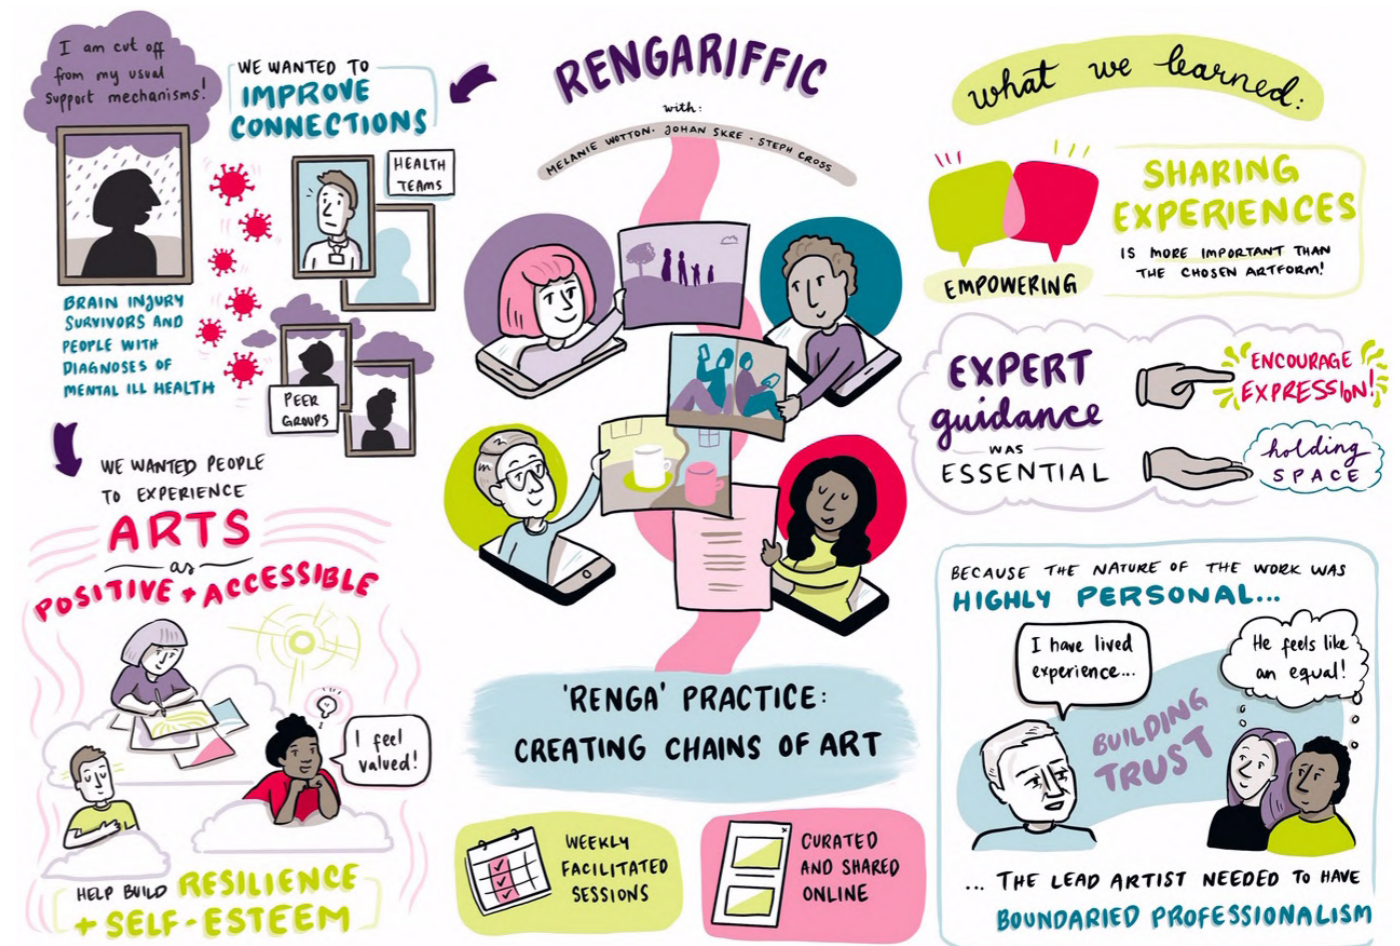 RENGARIFFIC
with:
MELANIE WOTTON · JOHAN SKRE · STEPH CROSS
I am cut off
from my usual
support mechanisms!
WE WANTED TO
IMPROVE
CONNECTIONS
HEALTH
TEAMS
BRAIN INJURY
SURVIVORS AND
PEOPLE WITH
DIAGNOSES OF
MENTAL ILL HEALTH
PEER
GROUPS
WE WANTED PEOPLE
TO EXPERIENCE
ARTS
as
POSITIVE + ACCESSIBLE
I feel
valued!
HELP BUILD RESILIENCE
+ SELF-ESTEEM
'RENGA' PRACTICE:
CREATING CHAINS OF ART
WEEKLY
FACILITATED
SESSIONS
CURATED
AND SHARED
ONLINE
what we learned:
EMPOWERING
SHARING
EXPERIENCES
IS MORE IMPORTANT THAN
THE CHOSEN ARTFORM!
EXPERT
guidance
WAS
ESSENTIAL
ENCOURAGE
EXPRESSION!
holding
SPACE
BECAUSE THE NATURE OF THE WORK WAS
HIGHLY PERSONAL...
I have lived
experience...
He feels like
an equal!
BUILDING
TRUST
... THE LEAD ARTIST NEEDED TO HAVE
BOUNDARIED PROFESSIONALISM